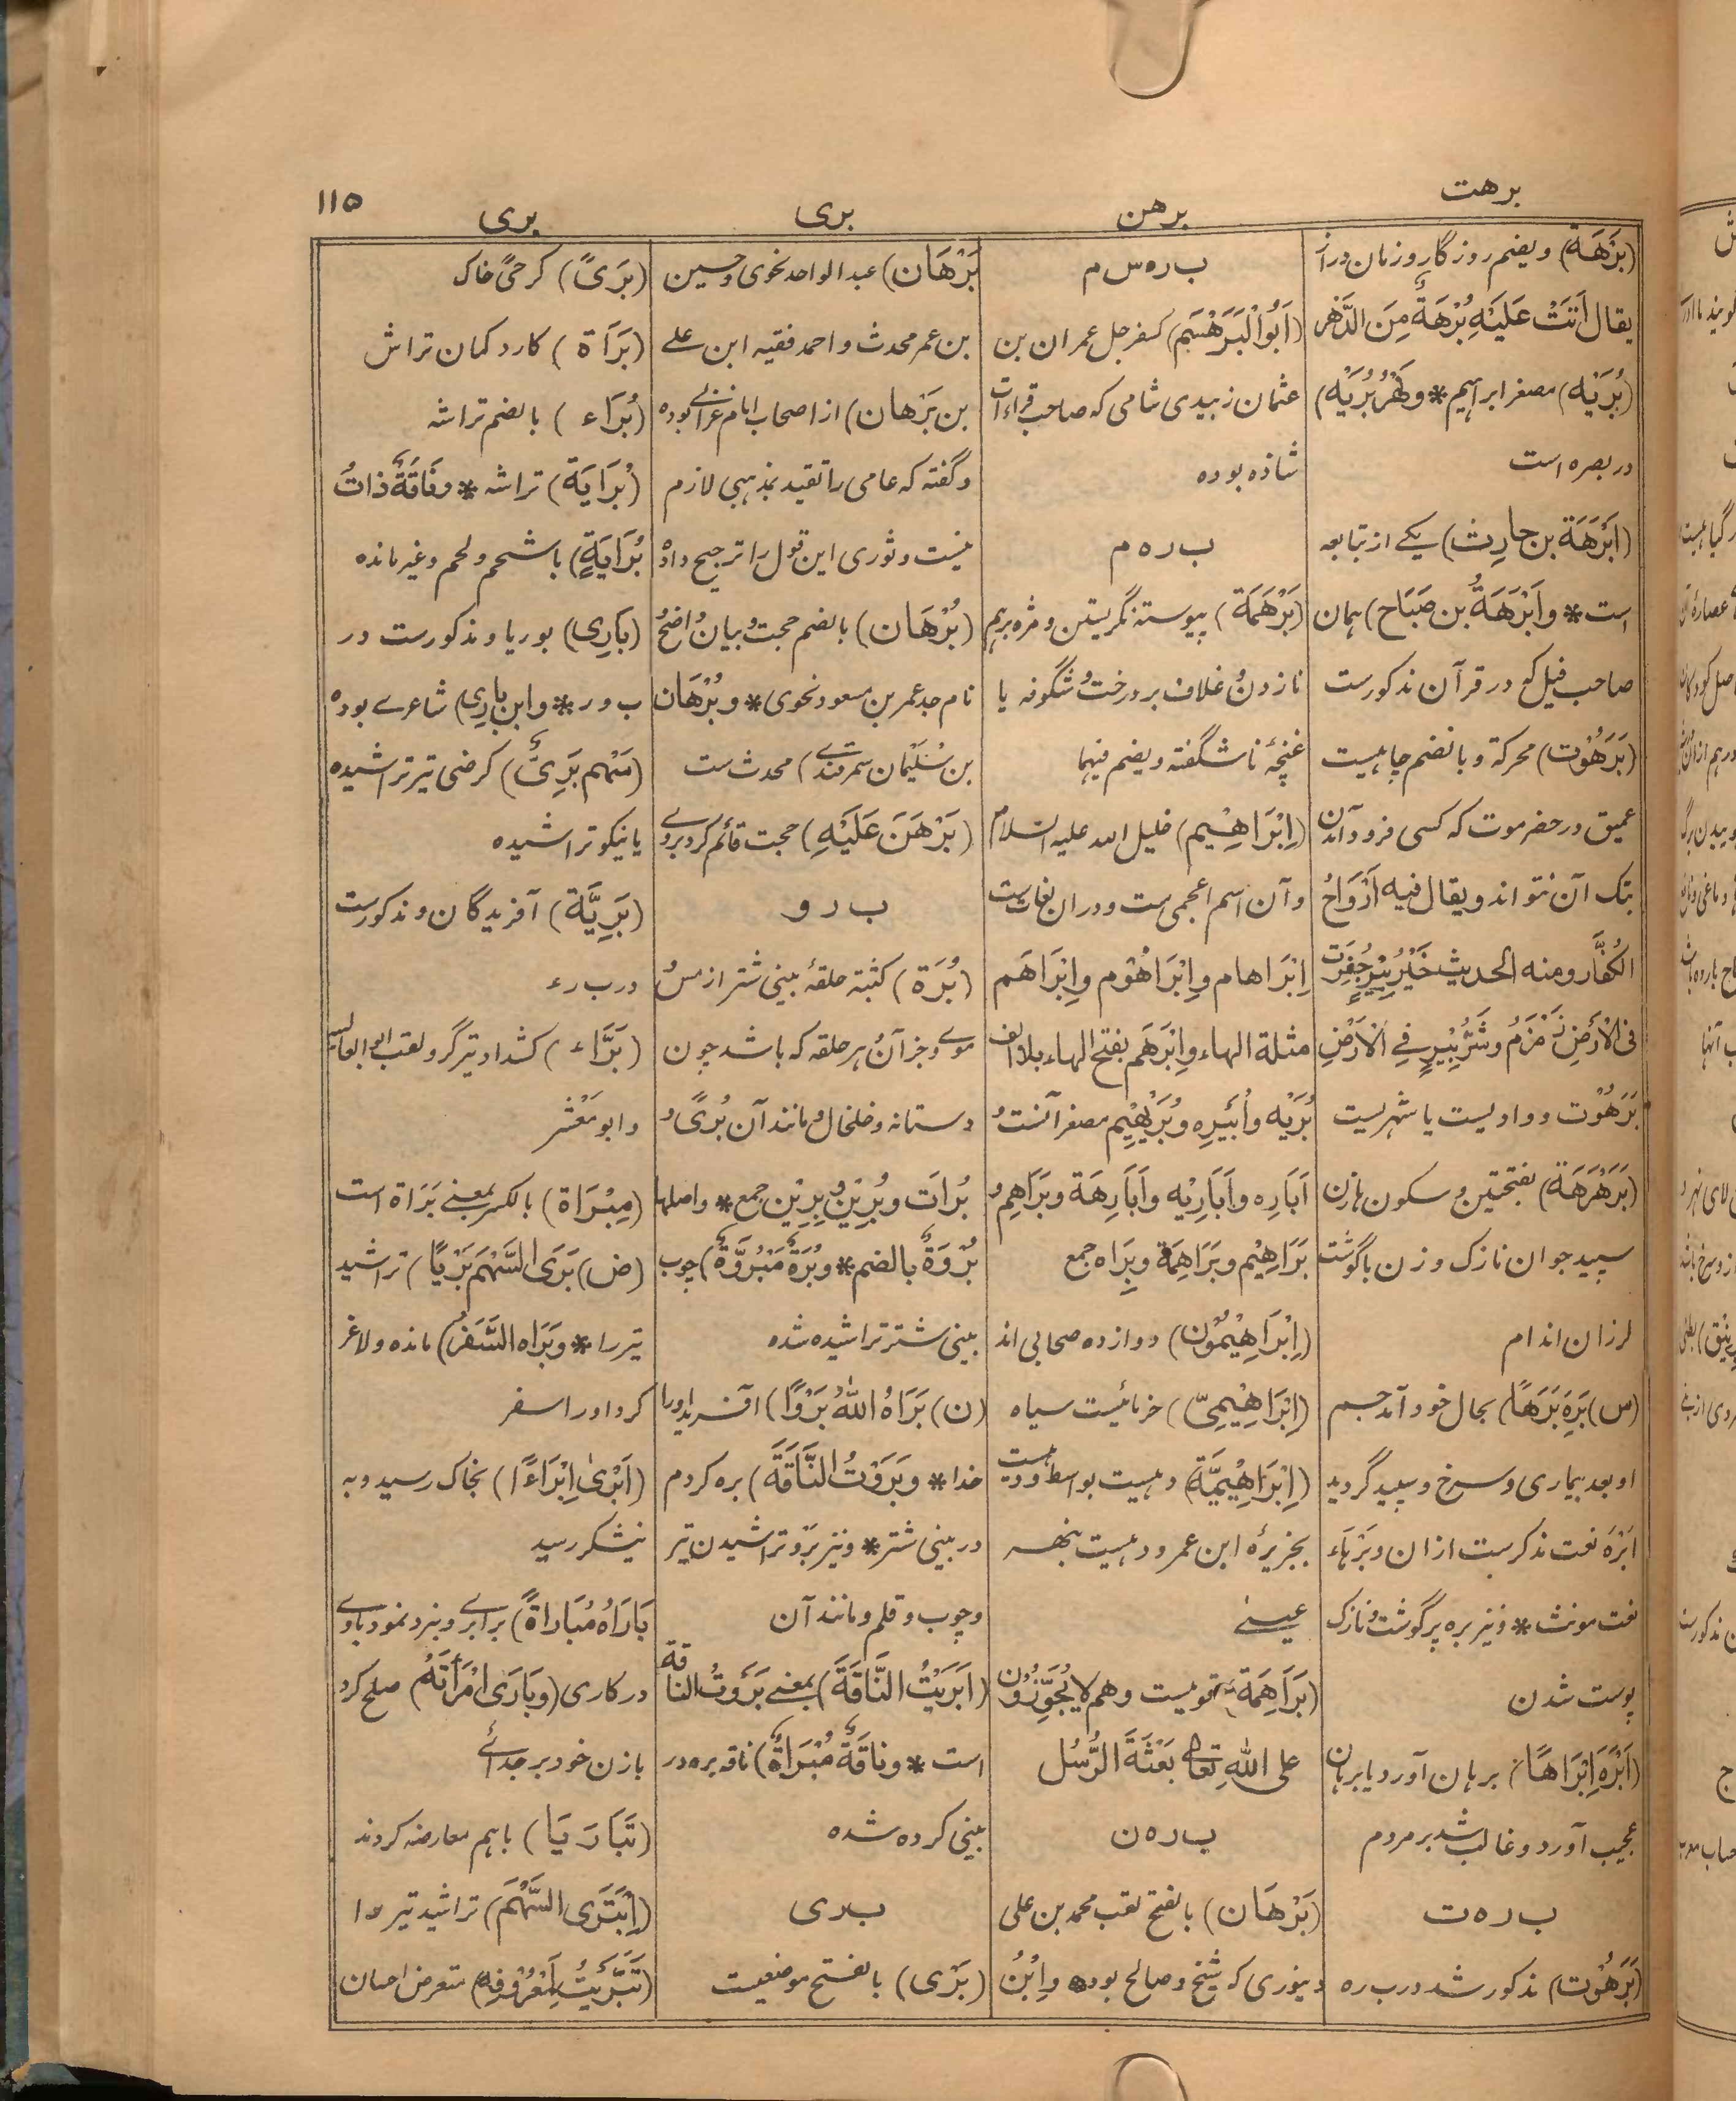 برهت
برهن
بری
بری
۱۱۵
(بَرْهَة) ویضم روزگار و زمان دراز
یقال أَتَتْ عَلَیْهِ بُرْهَةٌ مِنَ الدَّهْرِ
(بُرَیْه) مصغر ابراهیم * ونَهْرُ بُرَیْه)
در بصره است
(اَبْرَهَة بن حارِث) یکے از تبابعه
است * واَبْرَهَةُ بن صَبَاح) همان
صاحب فیل که در قرآن مذکورست
(بَرَهُوْت) محرکة و بالضم چاهیست
عمیق در حضرموت که کسی فرود آمدن
بتک آن نتواند ویقال فیه اَرْوَاحُ
الکُفَّار ومنه الحدیث خَیْرُ بِیْرٍ حُفِرَتْ
فی الْاَرْضِ زَمْزَمُ وشَرُّ بِیْرٍ فِی الْاَرْضِ
بَرَهُوْت و وادیست یا شهریست
(بَرَهْرَهَة) بفتحتین و سکون ها زن
سپید جوان نازک و زن باگوشت
لرزان اندام
(س) بَرِهَ بَرَهًا) بحال خود آمد جسم
او بعد بیماری و سرخ و سپید گردید
اَبْرَه نعت مذکرست ازان و بَرْهَاء
نعت مونث * ونیز بره پرگوشت و نازک
پوست شدن
(اَبْرَهَ اِبْرَاهًا) برهان آورد یا برهان
عجیب آورد و غالب شد بر مردم
ب ر ه ت
(بَرَهُوْت) مذکور شد در ب ر ه
ب ر ه س م
(اَبُو الْبَرَهْسَم) کسفرجل عمران بن
عثمان زبیدی شامی که صاحب قراءات
شاذه بوده
ب ر ه م
(بَرْهَمَة) پیوسته نگریستن و مژه برهم
نازدن و غلاف بر درخت و شگوفه یا
غنچۀ ناشگفته ویضم فیهما
(اِبْرَاهِیم) خلیل الله علیه السلام
و آن اسم اعجمی ست و دران لغات ست
اِبْرَاهام واِبْرَاهُوْم واِبْرَاهَم
مثلة الهاء واِبْرَهَم بفتح الهاء بلا الف
بُرَیْه واُبَیْرِه وبُرَیْهِیْم مصغر آنست و
اَبَارِه واَبَارِیْه واَبَارِهَة وبَرَاهِم و
بَرَاهِیْم وبَرَاهِمَة وبِرَاه جمع
(اِبْرَاهِیْمُوْن) دوازده صحابی اند
(اِبْرَاهِیْمِیّ) خرمائیست سیاه
(اِبْرَاهِیْمِیَّة) دهیست بواسط و دهیست
بجزیرۀ ابن عمر و دهیست بنهر
عیسے
(بَرَاهِمَة) قومیست وهم لا یُجَوِّزُوْن
علی اللهِ تعالی بَعْثَةَ الرُّسُل
ب ر ه ن
(بَرْهَان) بالفتح لقب محمد بن علی
دینوری که شیخ و صالح بوده وابْنُ
بَرْهَان) عبد الواحد نحوی وحسین
بن عمر محدث و احمد فقیه ابن علے
بن بَرْهان) از اصحاب امام غزالے بوده
وگفته که عامی را تقید بمذهبی لازم
نیست و نوری این قول را ترجیح داده
(بُرْهَان) بالضم حجت و بیان واضح و
نام جد عمر بن مسعود نحوی * وبُرْهَان
بن سُلَیْمان سمرقندے) محدث ست
(بَرْهَنَ عَلَیْهِ) حجت قائم کرد بروے
ب ر و
(بُرَة) کثبة حلقۀ بینی شتر از مس و
موے و جز آن و هر حلقه که باشد چون
دستانه و خلخال و مانند آن بُرًی و
بُرات وبُرِیْن وبِرِیْن جمع * واصلها
بُرْوَةٌ بالضم * وبُرَةٌ مَبْرُوَّةٌ) چوب
بینی شتر تراشیده شده
(ن) بَرَاهُ اللهُ بَرْوًا) آفرید او را
خدا * وبَرَوْتُ النَّاقَةَ) بره کردم
در بینی شتر * ونیز بَرْو تراشیدن تیر
وچوب و قلم و مانند آن
(اَبْرَیْتُ النَّاقَةَ) بمعنے بَرَوْتُ الناقة
است * وناقَةٌ مُبْرَاةٌ) ناقه بره در
بینی کرده شده
ب ر ی
(بَرْی) بالفتح موضعیست
(بَرًی) کرحًی خاک
(بَرَاة) کارد کمان تراش
(بُرَاء) بالضم تراشه
(بُرَایَة) تراشه * وناقَةٌ ذاتُ
بُرَایَةٍ) با شحم و لحم و غیر مانده
(بَارِی) بوریا و مذکورست در
ب و ر * وابن بارِی) شاعرے بوده
(سَهْم بَرِیٌّ) کرضی تیر تراشیده
یا نیکو تراشیده
(بَرِیَّة) آفریدگان و مذکورست
در ب ر ء
(بَرَّاء) کشداد تیرگر و لقب ابو العالیه
و ابو مَعْشَر
(مِبْرَاة) بالکسر بمعنے بَرَاة است
(ض) بَرَی السَّهْمَ بَرْیًا) تراشید
تیر را * وبَرَاه السَّفَرُ) مانده و لاغر
کرد او را سفر
(اَبْرَیٰ اِبْرَاءًا) بخاک رسید و به
نیشکر رسید
بَارَاهُ مُبَاراةً) برابرے و نبرد نمود باوے
در کاری (وبَارَی امْرَأتَهُ) صلح کرد
بازن خود بر جدائے
(تَبَارَیَا) باهم معارضه کردند
(اِبْتَرَی السَّهْمَ) تراشید تیر را
(تَبَرَّیْتُ لِمَعْرُوْفِهٖ) متعرض احسان